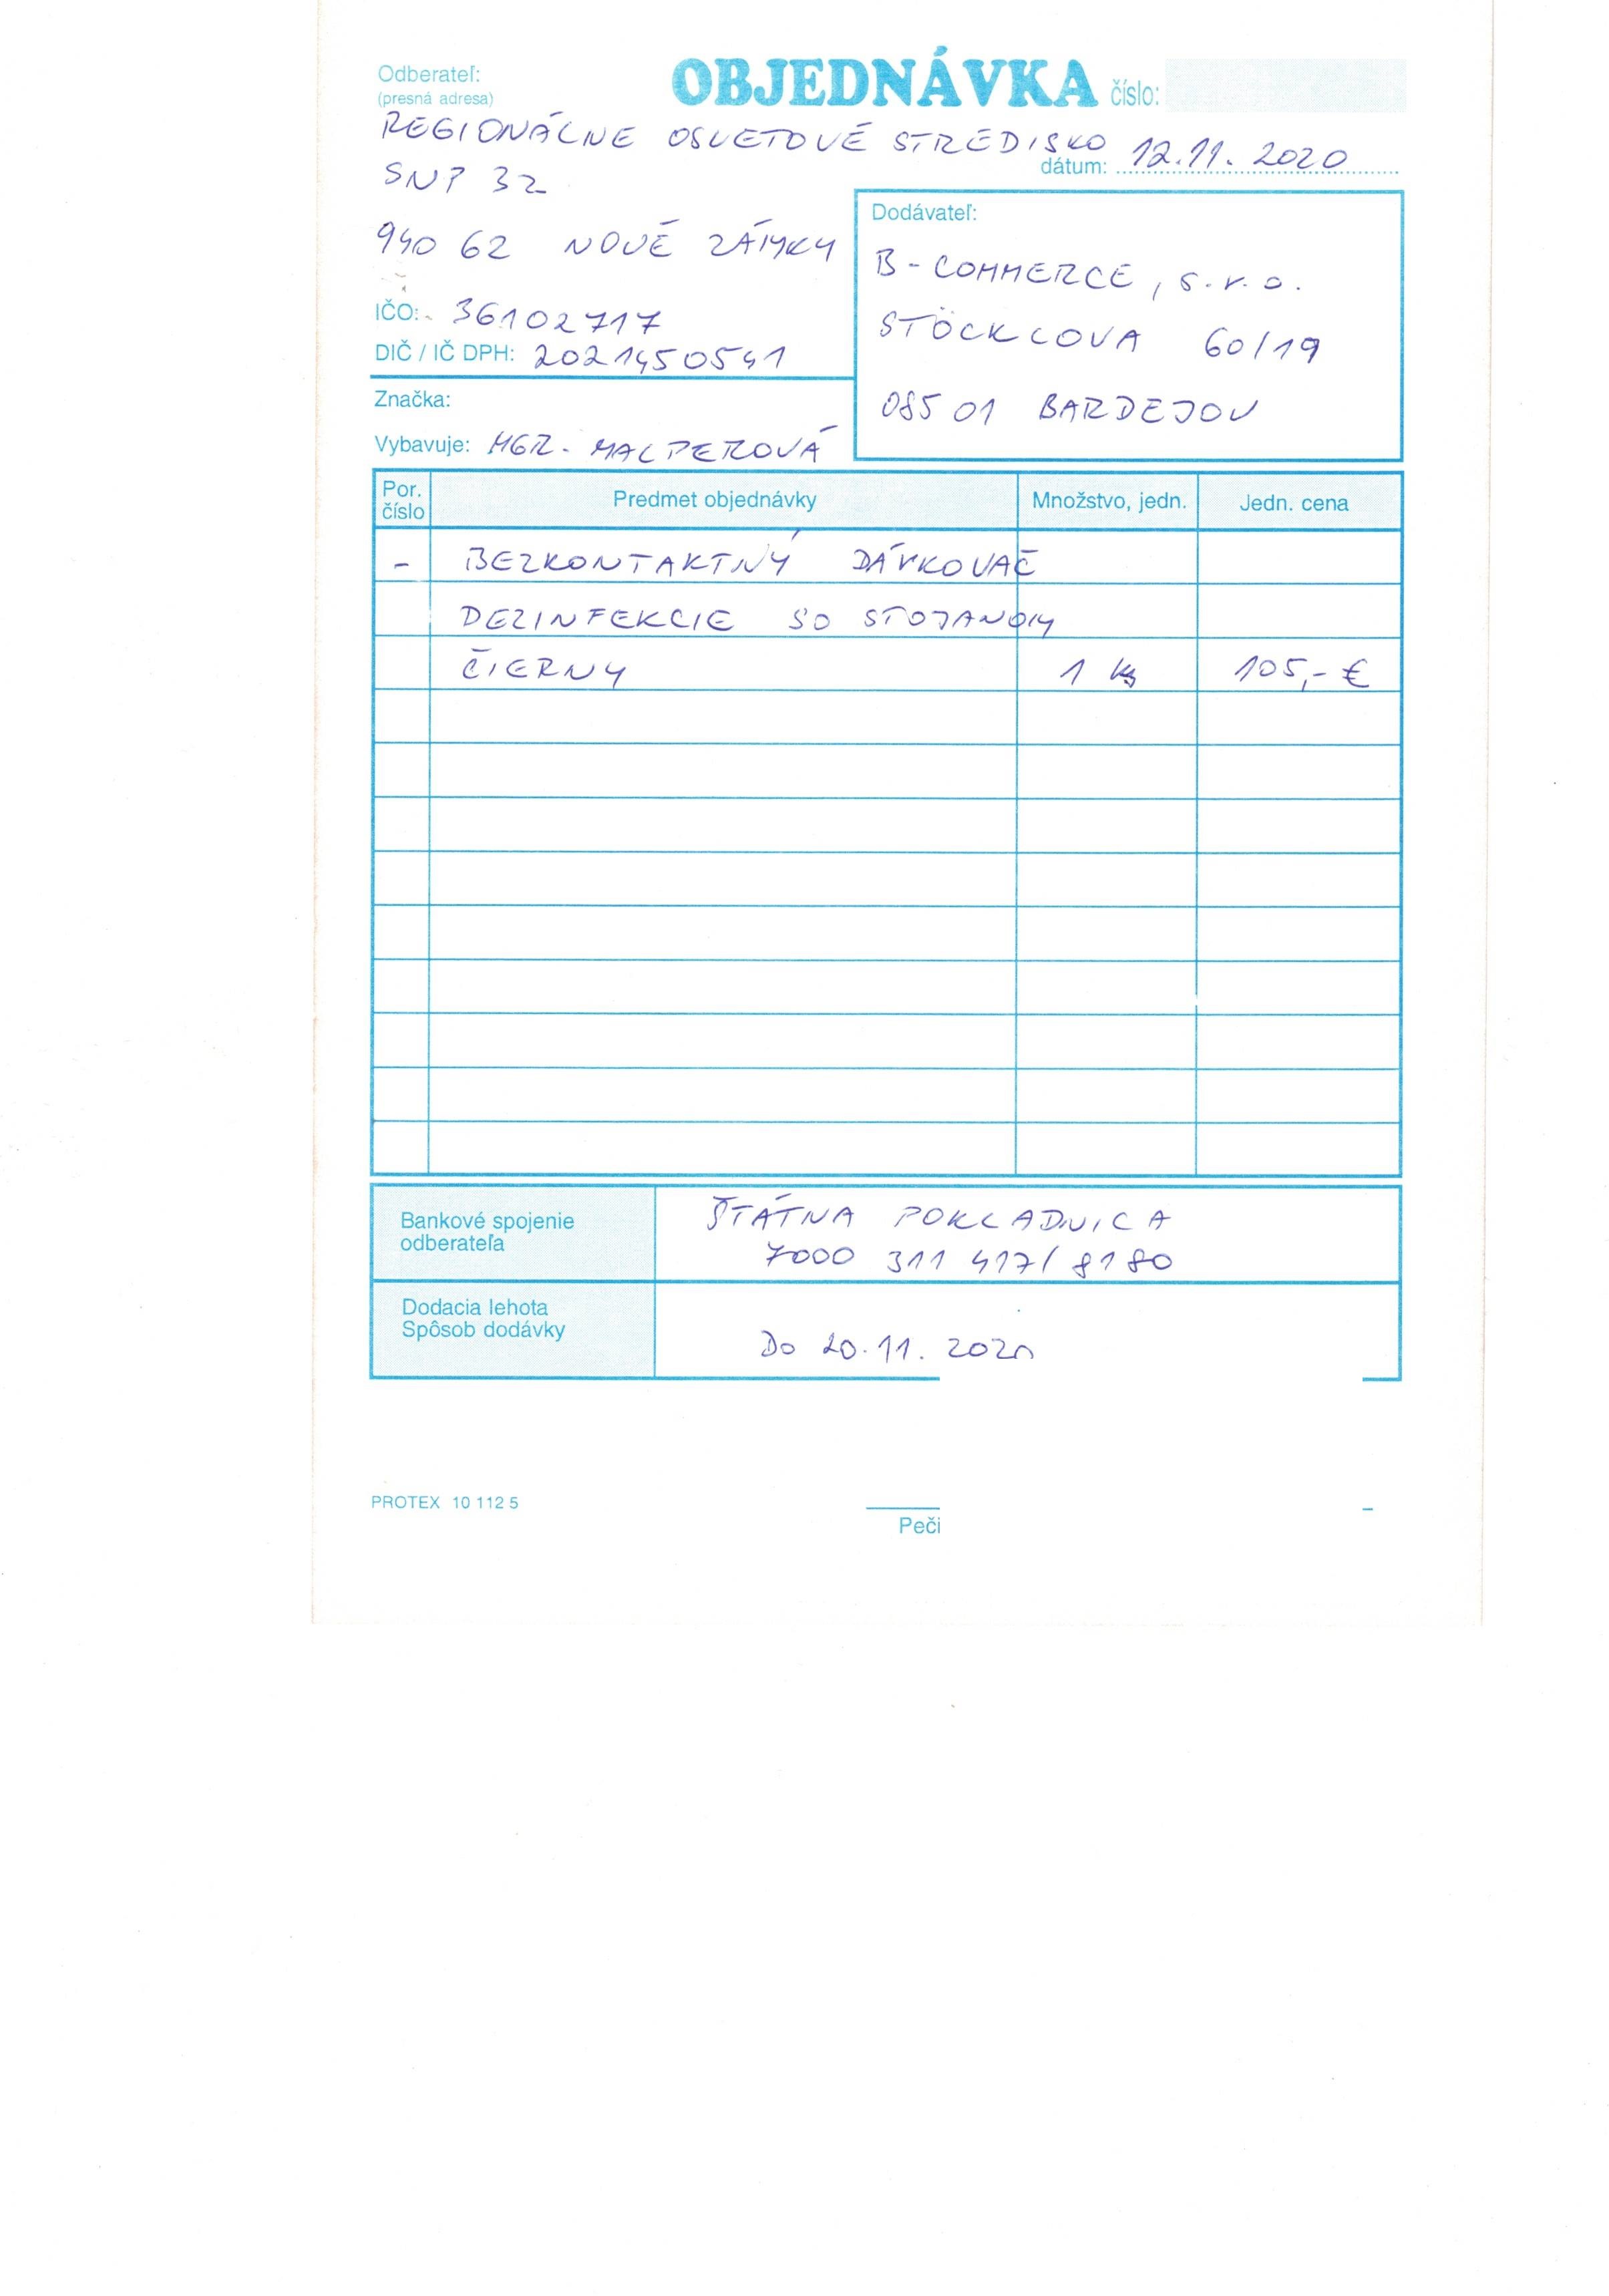 Odberateľ:
(presná adresa)
OBJEDNÁVKA číslo:
REGIONÁLNE OSVETOVÉ STREDISKO
dátum: 12.11. 2020
SNP 32
940 62 NOVÉ ZÁMKY
IČO: 36102717
DIČ / IČ DPH: 2021450541
Značka:
Vybavuje: MGR. MALPEROVÁ
Dodávateľ:
B-COMMERCE, s.r.o.
STÖCKLOVA 60/19
085 01 BARDEJOV
Por. číslo Predmet objednávky Množstvo, jedn. Jedn. cena
- BEZKONTAKTNÝ DÁVKOVAČ
DEZINFEKCIE SO STOJANOM
ČIERNY 1 ks 105,- €
Bankové spojenie
odberateľa
ŠTÁTNA POKLADNICA
7000 311 417/8180
Dodacia lehota
Spôsob dodávky
Do 20.11. 2020
PROTEX 10 112 5
Peči